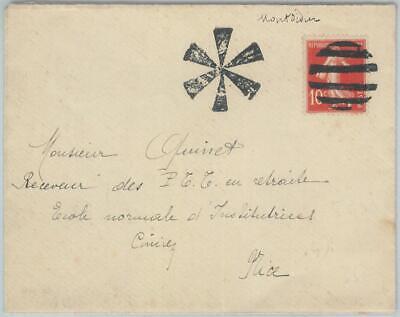 Montdidier
REPUBLIQUE
10c
Monsieur Quinset
Receveur des P.T.T. en retraite
Ecole normale d'Institutrices
Cimiez
Nice